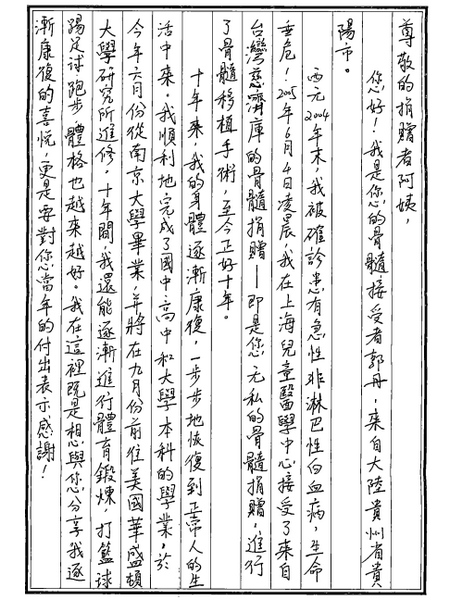 尊敬的捐贈者阿姨，
您好！我是您的骨髓接受者郭丹，來自大陸貴州省貴
陽市。
西元2004年末，我被確診患有急性非淋巴性白血病，生命
垂危！2005年6月4日凌晨，我在上海兒童醫學中心接受了來自
台灣慈濟庫的骨髓捐贈——即是您无私的骨髓捐贈，進行
了骨髓移植手術，至今正好十年。
十年來，我的身體逐漸康復，一步步地恢復到正常人的生
活中來。我順利地完成了國中、高中和大學本科的學業，於
今年六月份從南京大學畢業，并將在九月份前往美國華盛頓
大學研究所進修。十年間，我還能逐漸進行體育鍛煉，打籃球
踢足球、跑步，體格也越來越好。我在這裡既是想與您分享我逐
漸康復的喜悅，更是要對您當年的付出表示感謝！